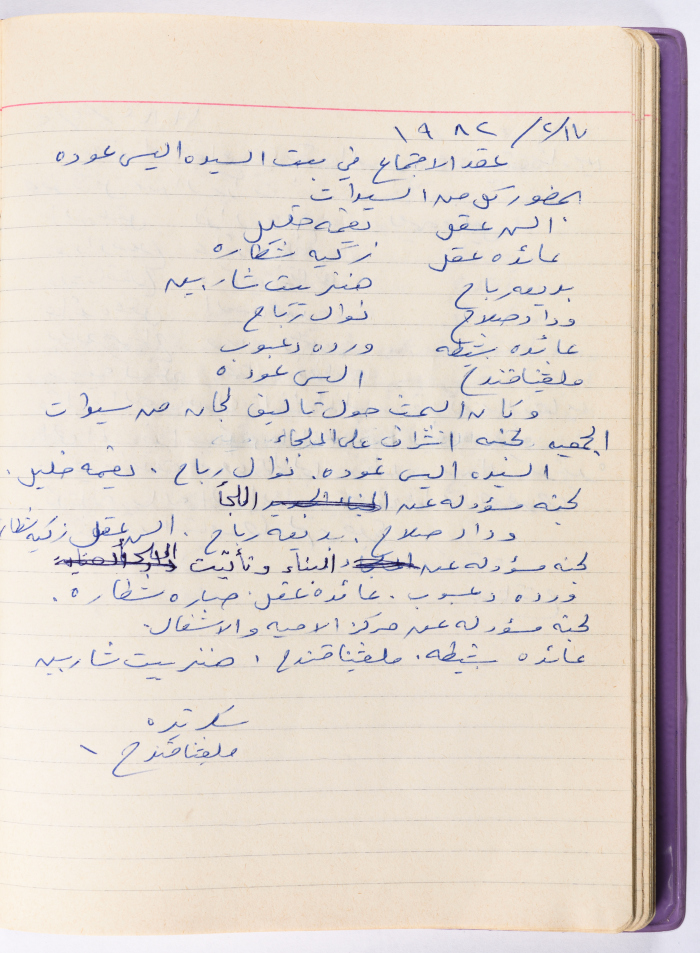 ١٧/٢/١٩٨٢
عقد الاجتماع في بيت السيده اليس عوده
بحضور كل من السيدات
السن عقل نعيمه خليل
عائده عقل زكيه شطاره
بديعه رباح هنرييت شاربين
وداد صلاح نوال رباح
عائده بشيطه ورده دعبوب
ملفينا قندح اليس عوده
وكان البحث حول تأليف لجان من سيدات
الجمعيه لجنه اشراف على الملجاء
السيده اليس عوده. نوال رباح. نعيمه خليل.
لجنه مسؤوله عن اللجأ
وداد صلاح. بديعه رباح. السن عقل زكيه شطاره
لجنه مسؤوله عن البناء وتأثيت
ورده دعبوب. عائده عقل. صباره شطاره.
لجنه مسؤوله عن مركز الاميه والاشغال.
عائده بشيطه. ملفينا قندح. هنرييت شاربين
سكرتيره
ملفينا قندح